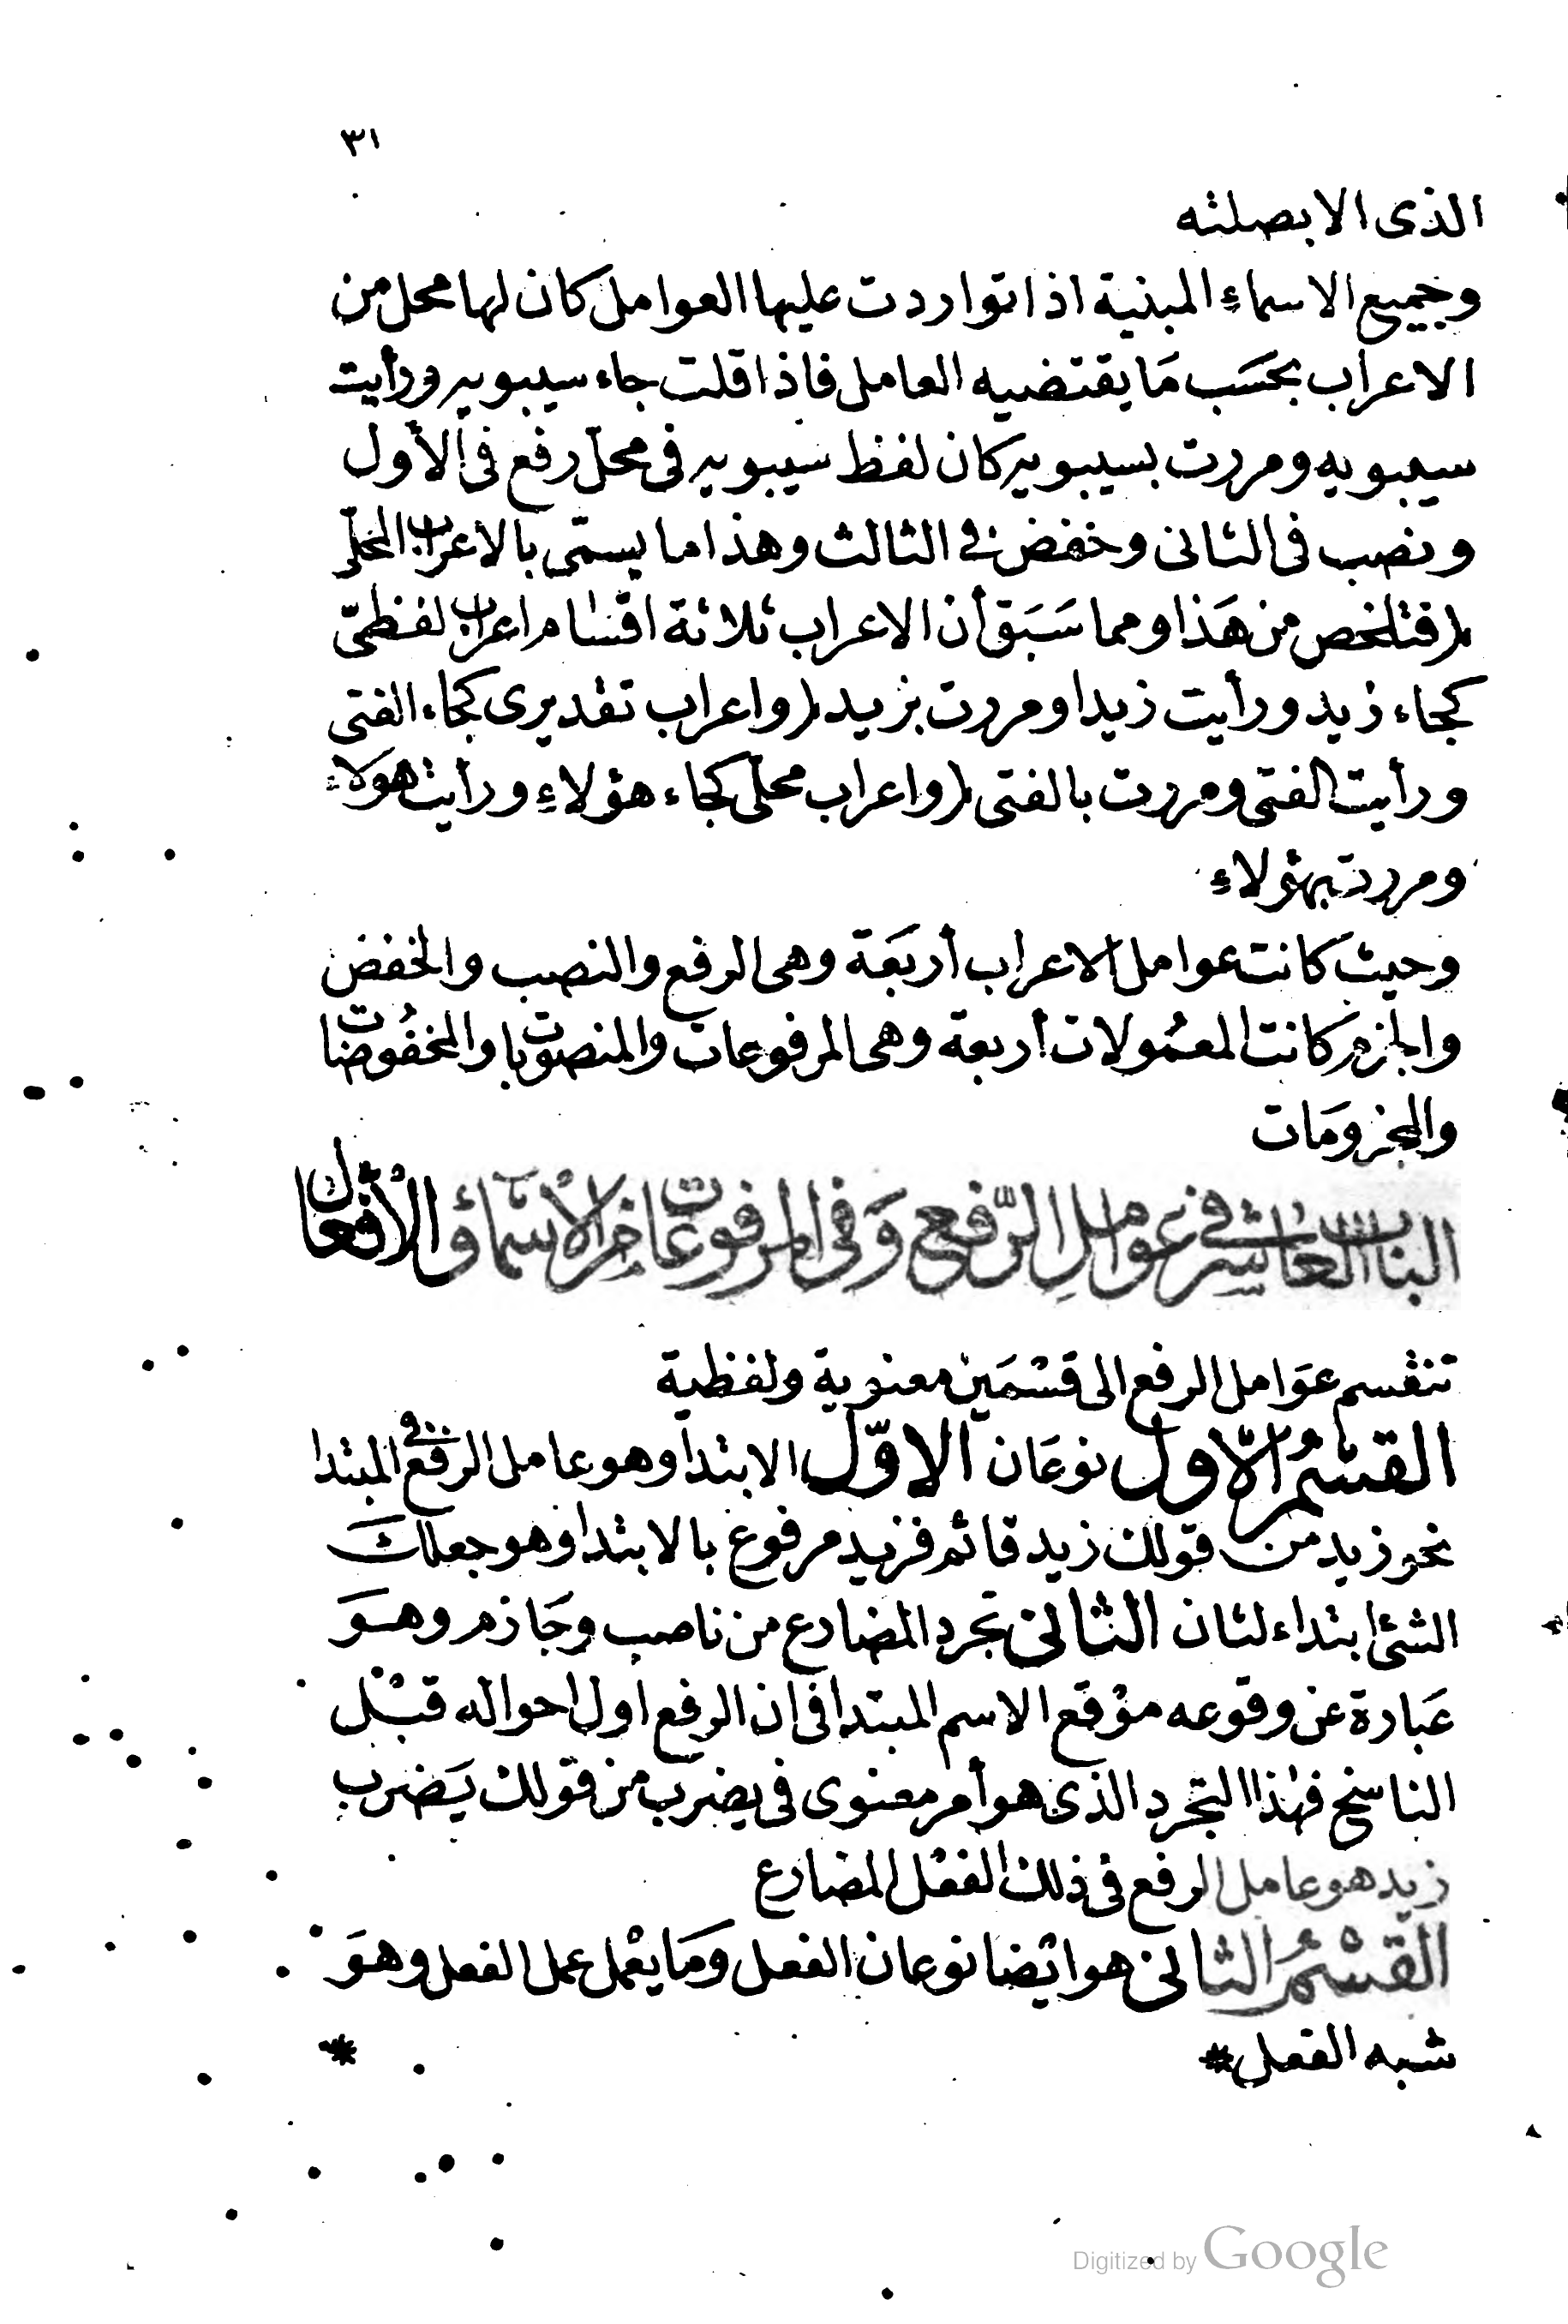 ٣١
الذى الا بصلته
وجميع الاسماءِ المبنية اذا تواردت عليها العوامل كان لها محل من
الاعراب بحَسَب مَا يقتضيه العامل فاذا قلت جاء سيبويه ورأيت
سيبويه ومررت بسيبويه كان لفظ سيبويه فى محلّ رفع فى الأول
ونصب فى الثانى وخفض فى الثالث وهذا ما يسمّى بالاعراب المحلّى
(فتلخص من هَذا ومما سَبَق أن الاعراب ثلاثة اقسام اعراب لفظىّ
كجاء زيد ورأيت زيدا ومررت بزيد (واعراب تقديرى كجاء الفتى
ورأيت الفتى ومررت بالفتى (واعراب محلّى كجاء هؤلاءِ ورأيت هؤلاءِ
ومررت بهؤلاءِ
وحيث كانت عوامل الاعراب أربَعَة وهى الرفع والنصب والخفض
والجزم كانت المعمُولات أربعة وهى المرفوعات والمنصوبات والمخفُوضات
والمجزومَات
الباب العاشر فى عوامل الرّفع وَفى المرفوعات من الأسْماء والأفْعال
تنقسم عوَامل الرفع الى قسْمَين معنوية ولفظية
القسْمُ الأول نوعَان الاوّل الابتدا وهو عامل الرفع فى المبتدا
نحو زيد من قولك زيد قائم فزيد مرفوع بالابتدا وهو جعلك
الشئ ابتداء لثان الثانى تجرد المضارع من ناصب وجَازم وهوَ
عَبارة عن وقوعه موْقع الاسم المبتدا فى ان الرفع اول احواله قبْل
الناسخ فهٰذا التجرد الذى هو أمر معنوى فى يضرَب من قولك يَضرب
زيد هو عامل الرفع فى ذلك الفعْل المضارع
القسْمُ الثانى هو ايْضا نوعان الفعل ومَا يعْمل عمل الفعل وهوَ
شبه الفعل * *
Digitized by Google